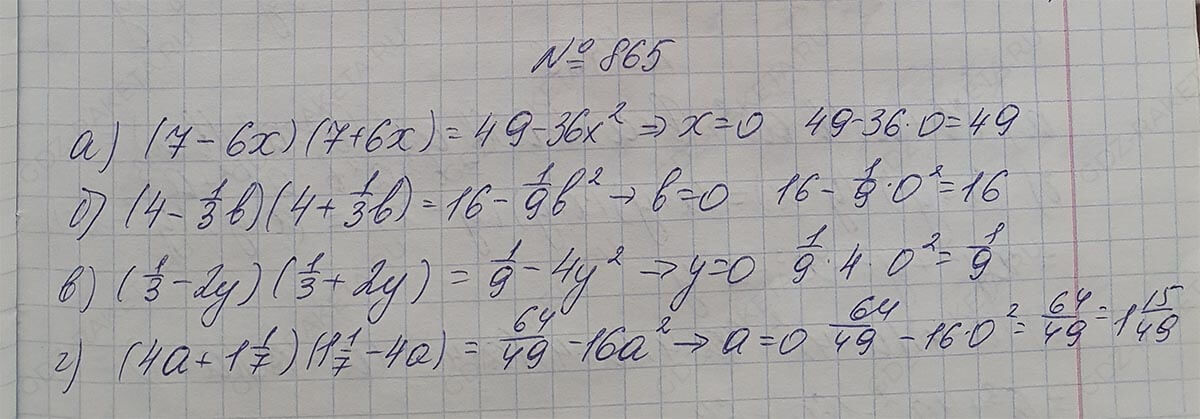 № 865
а) (7-6x)(7+6x) = 49-36x² ⇒ x=0 49-36·0=49
б) (4-1/3b)(4+1/3b) = 16-1/9b² → b=0 16-1/9·0²=16
в) (1/3-2y)(1/3+2y) = 1/9-4y² → y=0 1/9·4·0²=1/9
г) (4a+1 1/7)(1 1/7-4a) = 64/49-16a² → a=0 64/49-16·0²=64/49=1 15/49